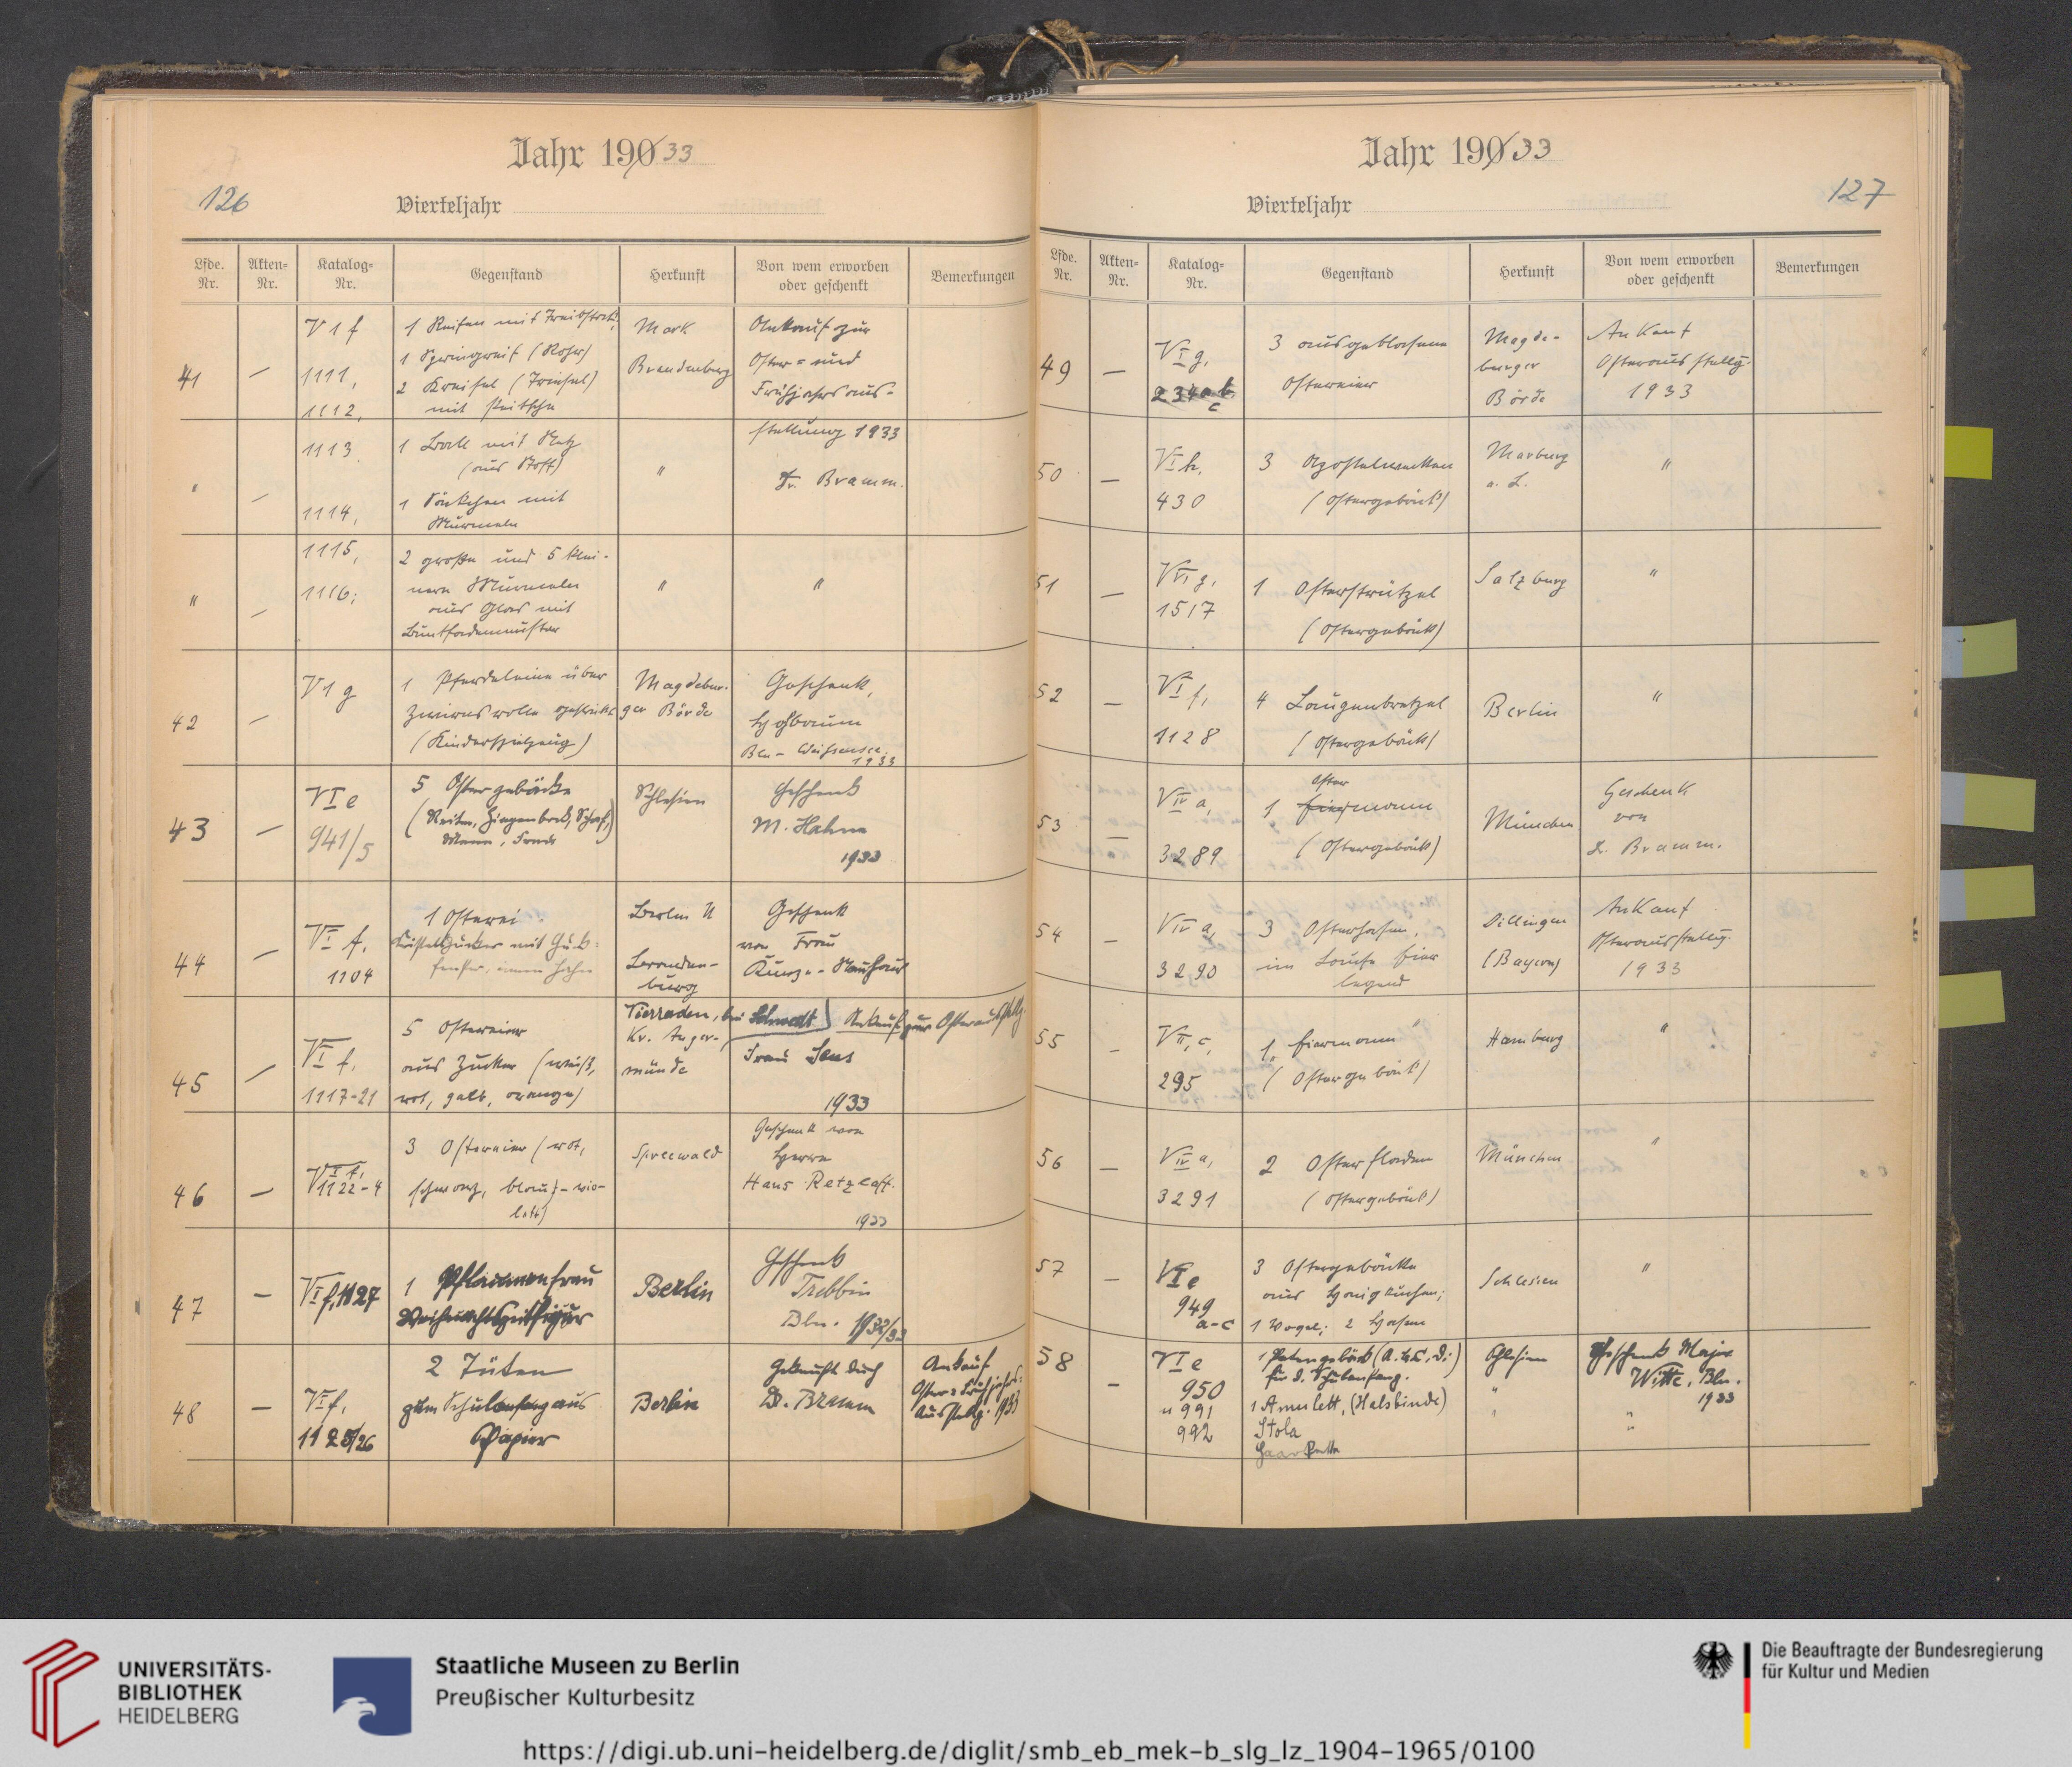 Jahr 190 33
126
Vierteljahr
Lfde. Nr.
Akten-Nr.
Katalog-Nr.
Gegenstand
Herkunft
Von wem erworben oder geschenkt
Bemerkungen
41
—
V 1 f
1111,
1112,
1 Reifen mit Treibstock,
1 Springreif (Rohr)
2 Kreisel (Triesel)
mit Peitsche
Mark
Brandenburg
Ankauf zur
Oster- und
Frühjahrsaus-
stellung 1933
Dr. Bramm.
"
—
1113.
1114,
1 Ball mit Netz
(aus Stoff)
1 Säckchen mit
Murmeln
"
"
—
1115,
1116;
2 große und 5 klei-
nere Murmeln
aus Glas mit
Buntfadenmuster
"
"
42
—
V 1 g
1 Pferdeleine über
(Kinderspielzeug)
Magdebur-
ger Börde
Geschenk,
Bln - Weißensee
1933
43
—
VI e
941/5
5 Ostergebäcke
(Reiter, Ziegenbock, Schaf,
Mann, Frau)
Schlesien
Geschenk
M. Hahm
1933
44
—
VI f.
1104
1 Osterei
Kristallzucker mit Guck-
fenster, innen Hahn
Berlin u
Branden-
burg
Geschenk
von Frau
Kunze-Neuhaus
45
—
VI f.
1117-21
5 Ostereier
aus Zucker (weiß,
rot, gelb, orange)
Vierraden, bei Schwedt
Kr. Anger-
münde
Ankauf zur Osterausstellg.
Frau Sens
1933
46
—
VI f,
1122-4
3 Ostereier (rot,
schwarz, blau) - vio-
lett)
Spreewald
Geschenk von
Herrn
Hans Retzlaff.
1933
47
—
VI f, 1127
1 Pflaumenfrau
Berlin
Geschenk
Trebbin
Bln. 1932/33
48
—
VI f.
1125/26
2 Tüten
zum Schulanfang aus
Papier
Berlin
Gekauft durch
Dr. Bramm
Ankauf
Oster- Frühjahrs-
Ausstellg. 1933
Jahr 190 33
127
Vierteljahr
Lfde. Nr.
Akten-Nr.
Katalog-Nr.
Gegenstand
Herkunft
Von wem erworben oder geschenkt
Bemerkungen
49
—
VI g,
234 a b
c
3 ausgeblasene
Ostereier
Magde-
burger
Börde
Ankauf
Osterausstellg.
1933
50
—
VI h,
430
3 Apostel
(Ostergebäck)
Marburg
a. L.
"
51
—
VI g,
1517
1 Osterstrützel
(Ostergebäck)
Salzburg
"
52
—
VI f,
1128
4 Laugenbretzel
(Ostergebäck)
Berlin
"
53
—
VIV a,
3289
1 Oster
Eiermann
(Ostergebäck)
München
Geschenk
von
Dr. Bramm.
54
—
VIV a,
3290
3 Osterhasen,
im Laufe Eier
legend
Dillingen
(Bayern)
Ankauf
Osterausstellg.
1933
55
—
VII, c,
295
1 Eiermann
(Ostergebäck)
Hamburg
"
56
—
VIV a,
3291
2 Osterfladen
(Ostergebäck)
München
"
57
—
VI e
949
a-c
3 Ostergebäcke
aus Honigkuchen;
1 Vogel; 2 Hasen
Schlesien
"
58
—
VI e
950
" 991
992
1 Patengebäck (A. b. C. D.)
für d. Schulanfang.
1 Amulett, (Halsbinde)
Stola
Schlesien
"
Geschenk Major
Witte, Bln.
1933
"
UNIVERSITÄTS-
BIBLIOTHEK
HEIDELBERG
Staatliche Museen zu Berlin
Preußischer Kulturbesitz
Die Beauftragte der Bundesregierung
für Kultur und Medien
https://digi.ub.uni-heidelberg.de/diglit/smb_eb_mek-b_slg_lz_1904-1965/0100